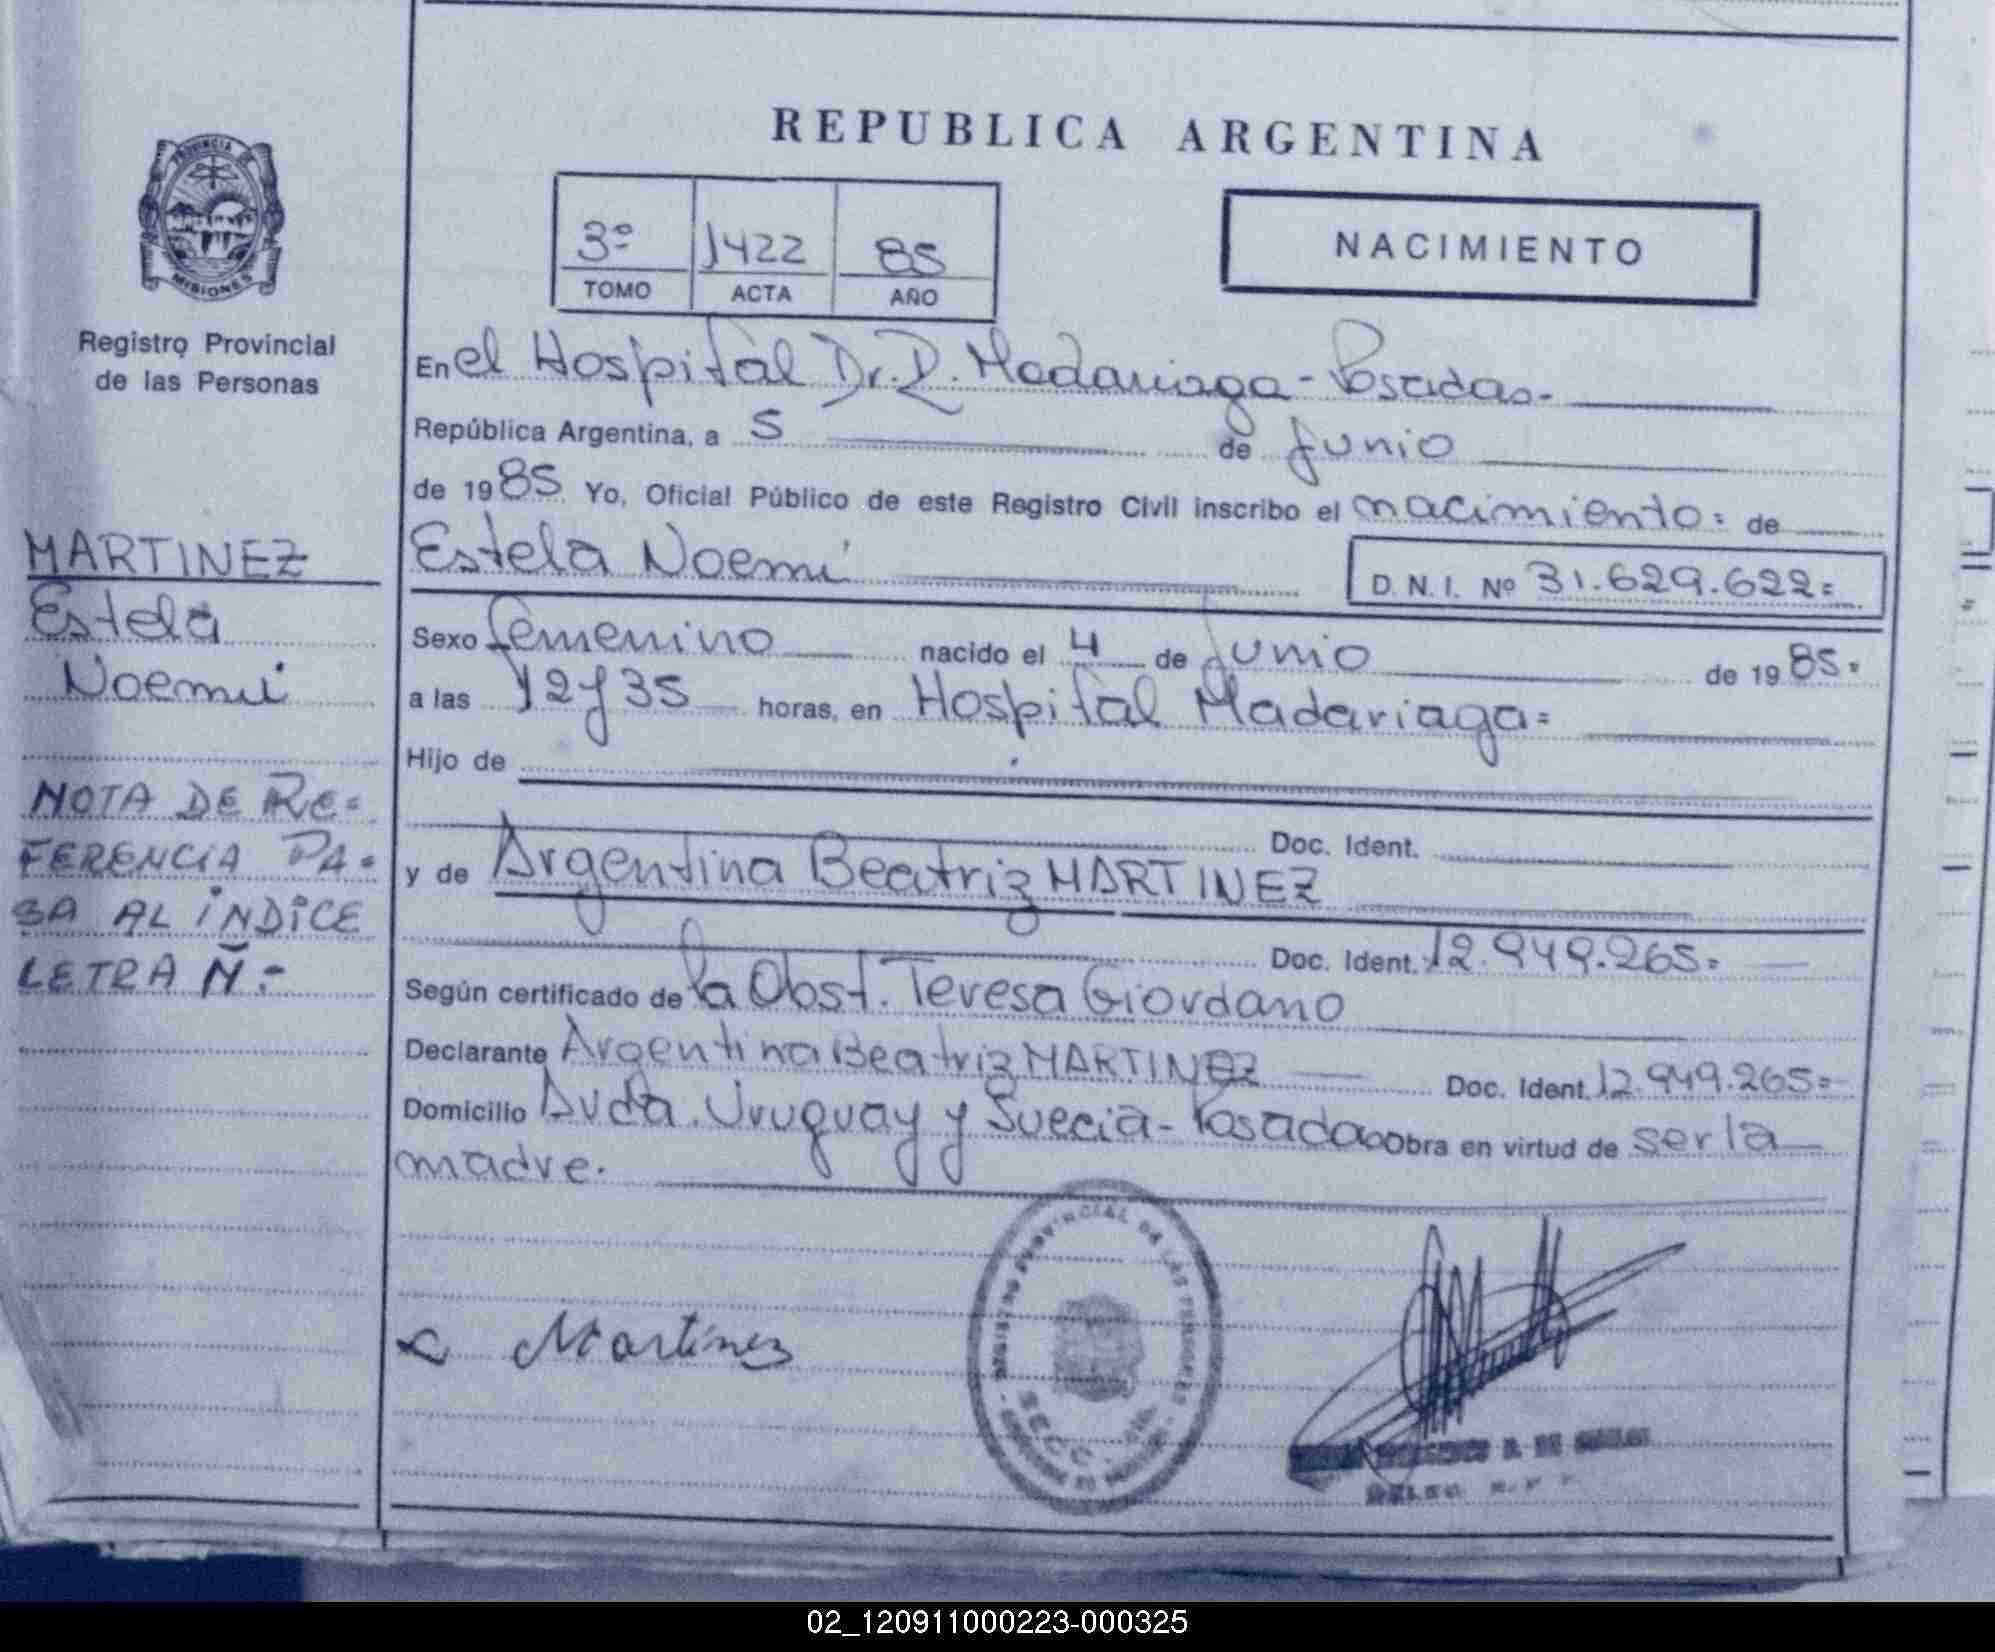 REPUBLICA ARGENTINA
PROVINCIA DE
MISIONES
3º 1422 85
TOMO ACTA AÑO
NACIMIENTO
Registro Provincial
de las Personas
En el Hospital Dr. R. Madariaga - Posadas.
República Argentina, a 5 de Junio
de 1985 Yo, Oficial Público de este Registro Civil inscribo el nacimiento= de
Estela Noemí D. N. I. Nº 31.629.622=
MARTINEZ
Estela
Noemí
Sexo femenino nacido el 4 de Junio de 1985=
a las 12 y 35 horas, en Hospital Madariaga=
Hijo de
Doc. Ident.
y de Argentina Beatriz MARTINEZ
Doc. Ident. 12.949.265=
NOTA DE RE=
FERENCIA PA=
SA AL iNDiCE
LETRA Ñ.-
Según certificado de la Obst. Teresa Giordano
Declarante Argentina Beatriz MARTINEZ Doc. Ident. 12.949.265=
Domicilio Avda. Uruguay y Suecia - Posadas Obra en virtud de ser la
madre.
REGISTRO PROVINCIAL DE LAS PERSONAS
SECC.
Martínez
02_120911000223-000325